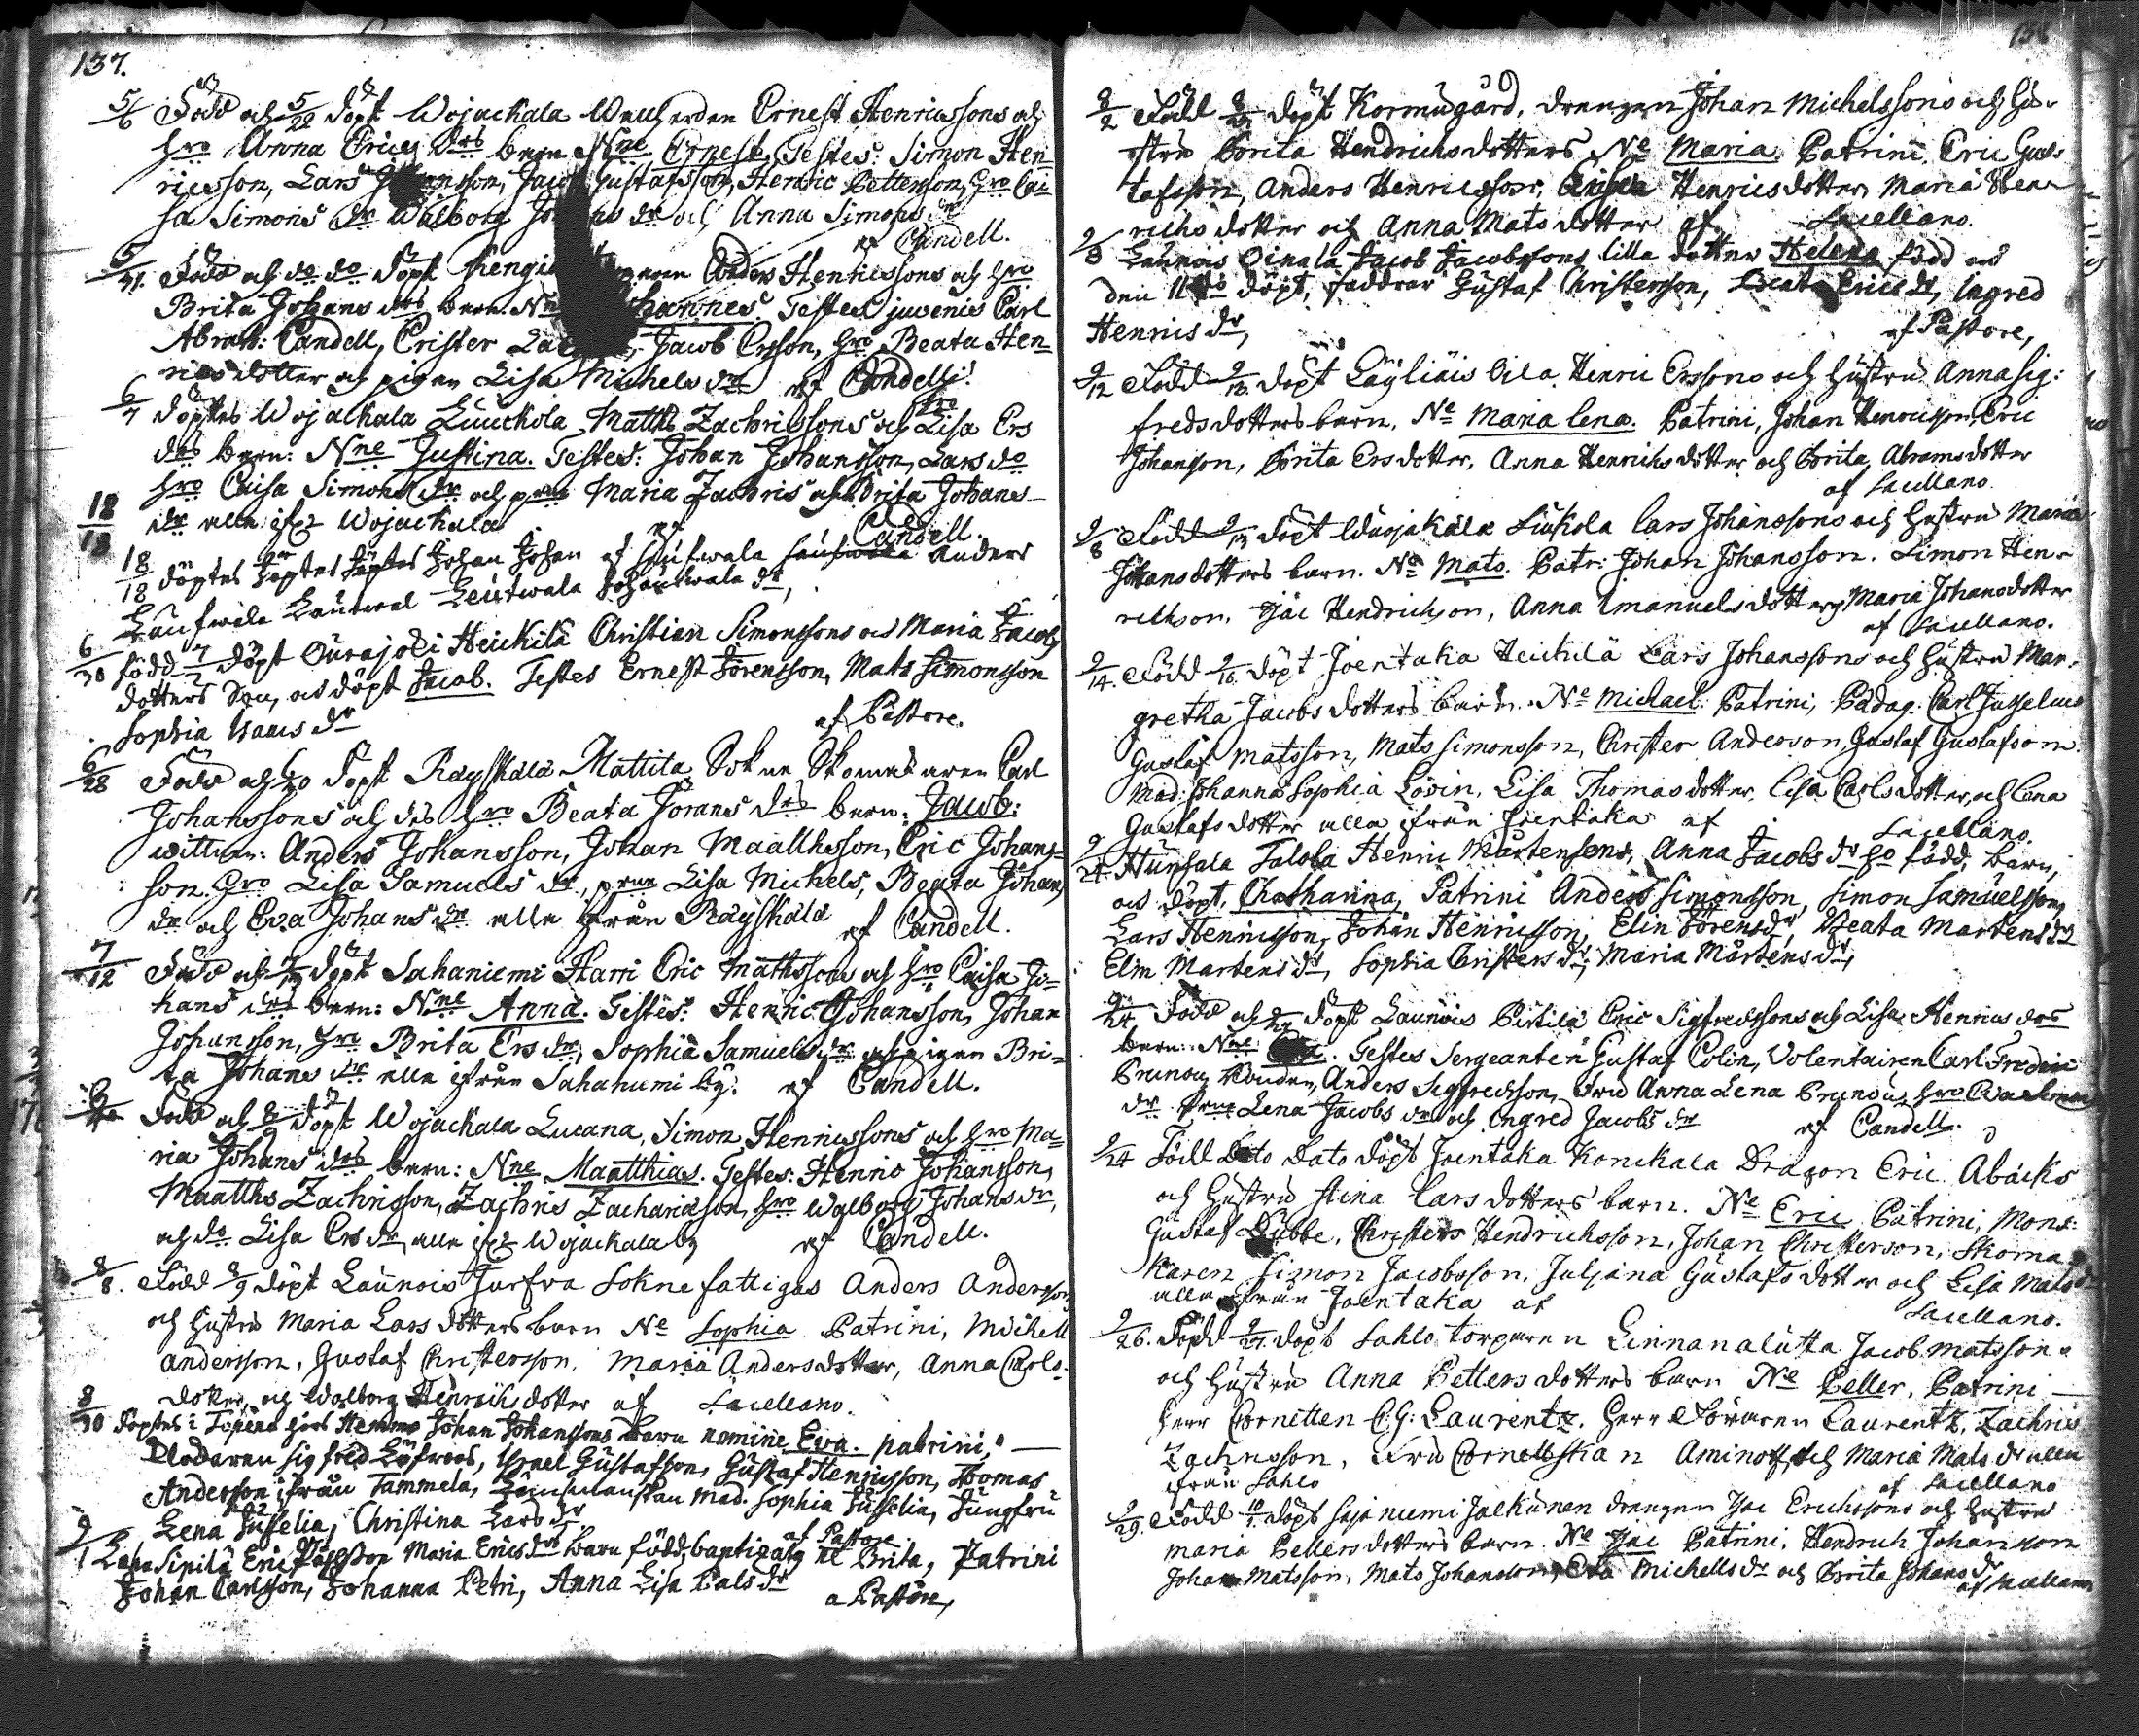 137.
5/6 Född och 5/29 döpt Wojackala Ernest Henricssons och
Hro Anna Erics drs barn Nne Ernest. Testes: Simon Hen-
ricsson, Lars Jacob Gustafsson, Henric Pettersson, Hro Cai-
sa Simons dr Walborg dr och Anna Simons dr
af Candell.
5/31. Född och do do döpt Anders Henricssons och Hro
Brita Johans drs barn. Testes juvenis Carl
Abrah: Candell, Crister Jacob Ersson, Hro Beata Hen-
rics dotter och pigan Lisa Michels dr af Candell.
6/7 Döptes Wojackala Luuckola Matths Zachrissons och Hro Lisa Ers
drs barn: Nne Justina. Testes: Johan Johansson, Lars do
Hro Caisa Simons dr och Maria Zachris och Brita Johans-
dr alla ifr. Wojackala af Candell.
18/18
18/18 döptes döptes döptes Johan Johan af Anders
dr,
6/30 född 7/2 döpt Ourajoki Heickilä Christian Simonssons och Maria Jacobs
dotters Son, och döpt Jacob. Testes Ernest Jörensson, Mats Simonsson
Sophia Isaacs dr
af Pastore.
6/28 Född och do döpt Räyskälä Mattila Sokne Skomakaren Carl
Johanssons och des Hro Beata Jörans drs barn: Jacob:
wittnen: Anders Johansson, Johan Maatthsson, Eric Johans-
son, Hro Lisa Samuels dr, Lisa Michels, Beata Johans
dr och Eva Johans dr alla ifrån Räyskälä
af Candell.
7/12 Född och döpt Sahaniemi Harri Eric Mathsson och Hro Caisa Jo-
hans drs barn: Nne Anna. Testes: Henric Johansson, Johan
Johansson, Hro Brita Ers dr, Sophia Samuels dr och pigan Bri-
ta Johans dr alla ifrån Sahaniemi by. af Candell.
Född och 8 döpt Wojackala Lucana, Simon Henricssons och Hro Ma-
ria Johans drs barn: Nne Maatthias. Testes: Henric Johansson,
Maatths Zachrisson, Zachris Zachariasson, Hro Walborg Johans dr,
och do Lisa Ers dr, alla ifr. Wojackala by af Candell.
8/8. Född 8/9 döpt Launois Jurfva Sokne fattigas Anders Andersson
och Hustru Maria Lars dotters barn Ne Sophia Patrini, Michell
Andersson, Gustaf Christersson, Maria Andersdotter, Anna Carls-
dotter, och Walborg Henrichsdotter af Sacellano.
8/30 döptes i Johan Johanssons barn nomine Eva. patrini,
Sigfred Löfroos, Israel Gustafsson, Gustaf Henricsson, Thomas
Andersson ifrån Tammela, Mad. Sophia Jusselia, Jungfru
Lena Jusselia, Christina Lars dr
af Pastore
9/1 Sipilä Eric Maria Erics drs barn född, baptizata ne Brita, Patrini
Johan Carlsson, Johanna Petri, Anna Lisa Pals dr
a Pastore,
8/2 Född döpt Kormugård, drengen Johan Michelssons och Hu-
stru Brita Hendrichsdotters Ne Maria. Patrini, Eric Gus-
tafsson, Anders Henricsson, Henricsdotter, Maria Hen-
richsdotter och Anna Matsdotter af Sacellano.
9/8 Launois Oinala Jacob Jacobssons lilla dotter Helena född och
den 11 döpt, faddrar Gustaf Christersson, Beata Erics dr, Ingred
Henrics dr,
af Pastore,
9/12 Född 9/13. döpt Läyliäis Oila Henric Erssons och Hustru Anna Sig-
freds dotters barn, Ne Maria Lena. Patrini, Johan Henricsson, Eric
Johansson, Brita Ersdotter, Anna Henrichsdotter och Brita Abramsdotter
af Sacellano.
9/8 Född 9/13 döpt Wojakala Liukola Lars Johanssons och Hustru Maria
Johansdotters barn. Ne Mats. Patr: Johan Johansson. Simon Hen-
richson, Isac Hendrichson, Anna Emanuelsdotter, Maria Johansdotter
af Sacellano.
9/14. Född 9/16. döpt Joentaka Heickilä Lars Johanssons och Hustru Mar-
gretha Jacobsdotters barn. Ne Michael. Patrini, Pädag. Carl Jusselius
Gustaf Matsson, Mats Simonsson, Christer Anderson, Gustaf Gustafson.
Mad: Johanna Sophia Lovin, Lisa Thomasdotter, Lisa Carlsdotter, och Lena
Gustafs dotter alla ifrån Joentaka af Sacellano.
9/24. Hunsala Talola Henric Mårtenssons, Anna Jacobs dr född, barn,
och döpt, Chatharina, Patrini Anders Simonsson, Simon Samuelsson,
Lars Henricsson, Johan Henricsson, Elin Jörens dr, Beata Mårtens dr
Elin Mårtens dr, Sophia Christers dr, Maria Mårtens dr,
9/24 Född och 9/27 döpt Launois Pirtilä Eric Sigfredssons och Lisa Henrics drs
barn: Nne. Testes Sergeanten Gustaf Colin, Volentairen Carl Fredric
Brunou, Anders Sigfredsson, Fru Anna Lena Brunou, Hro Eva Simons
dr Lena Jacobs dr och Ingred Jacobs dr af Candell.
9/24 Född Dato Dato döpt Joentaka Konckala Dragon Eric Abacks
och Hustru Stina Larsdotters barn. Ne Eric Patrini, Mons:
Gustaf Dubbe, Christers Hendrichsson, Johan Christersson, Skoma-
karen Simon Jacobsson, Juliana Gustafsdotter och Lisa Mats dr
alla ifrån Joentaka af Sacellano.
9/26. Född 9/27. döpt Sahlo torparen Linnanalutta Jacob Matsson
och Hustru Anna Petters dotters barn Ne Petter. Patrini
Herr Cornetten C.G. Laurentz. Herr Laurentz, Zachris
Zachrisson, Fru Cornettskan Aminoff, och Maria Mats dr alla
ifrån Sahlo af Sacellano
9/29. Född 10/1. döpt Sajaniemi Jalkanen drengen Isac Erichssons och Hustru
Maria Pettersdotters barn. Ne Isac Patrini, Hendrich Johansson
Johan Matsson, Mats Johansson, Eva Michells dr och Brita Johans dr
af Sacellano